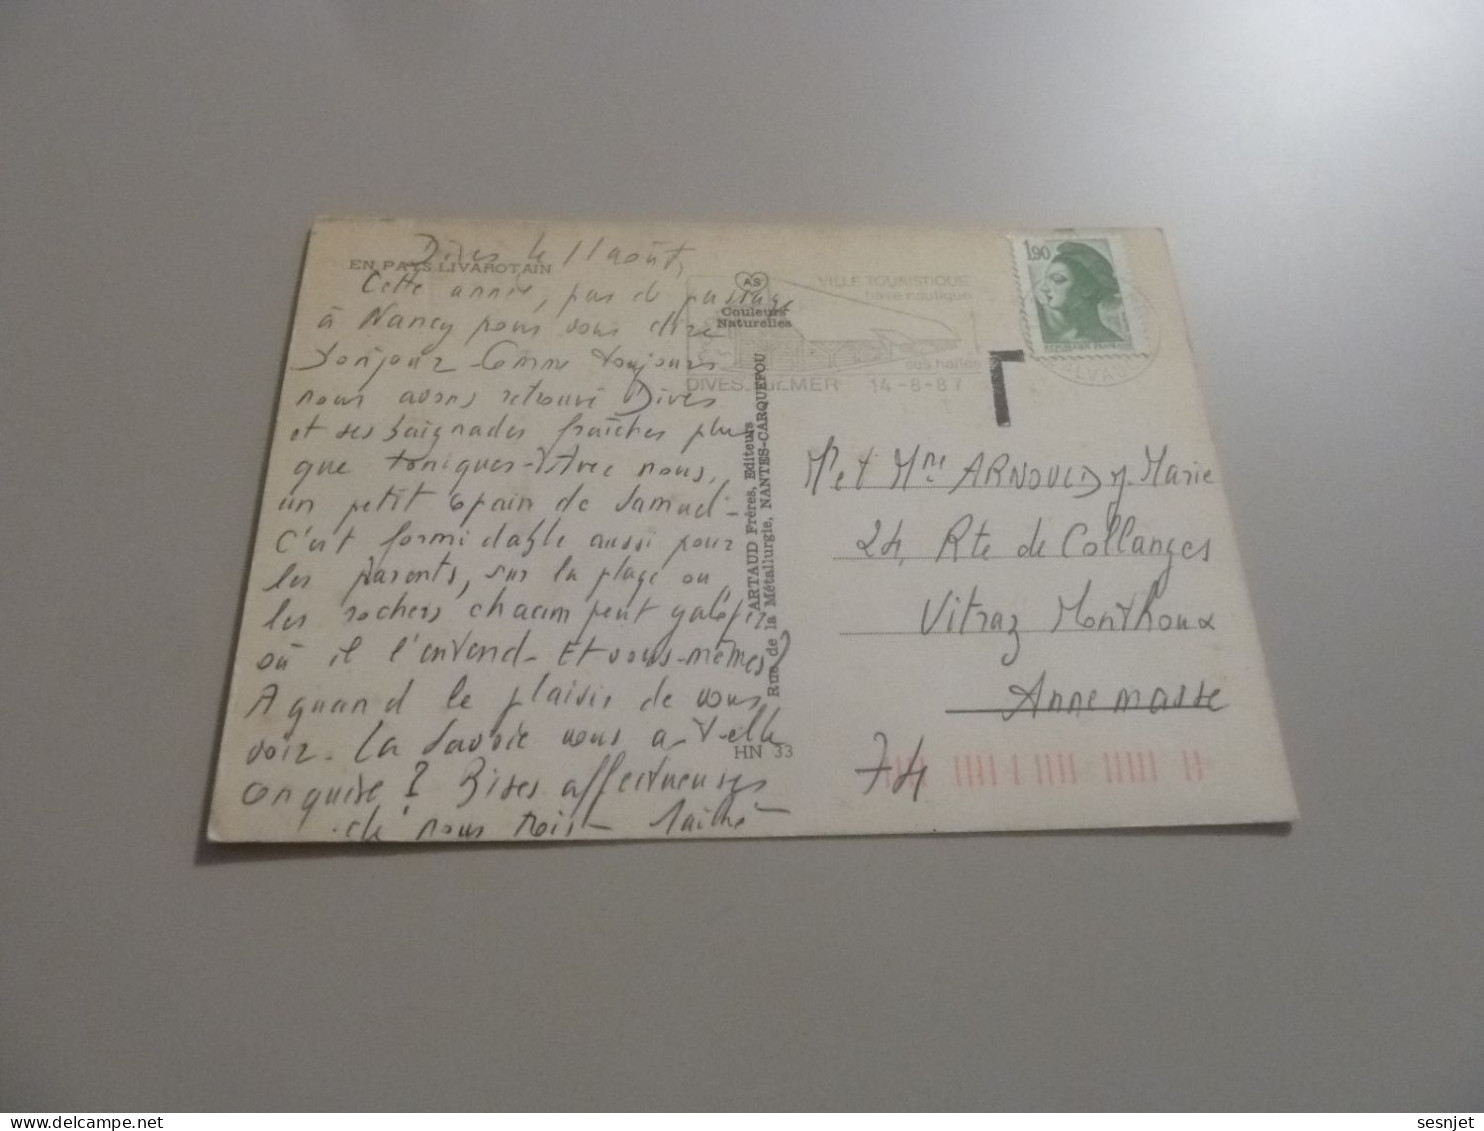 EN PAYS LIVAROTAIN
Dives le 11 août,
Cette année, pas de passage
à Nancy pour vous dire
bonjour - Comme toujours
nous avons retrouvé Dives
et ses baignades fraîches plus
que toniques - Avec nous,
un petit copain de Samuel -
C'est formidable aussi pour
les parents, sur la plage ou
les rochers chacun peut
où il l'entend - Et vous-mêmes?
A quand le plaisir de vous
voir - La Savoie vous a-t-elle
conquise ? Bises affectueuses
de nous trois -
AS
Couleurs
Naturelles
ARTAUD Frères, Editeurs
Rue de la Métallurgie, NANTES-CARQUEFOU
HN 33
VILLE TOURISTIQUE
base nautique
ses halles
DIVES-SUR-MER 14-8-87
1,90
CALVADOS
Mr et Mme ARNOULD J. Marie
24, Rte de Collanges
Vitraz Monthoux
Annemasse
74
sesnjet